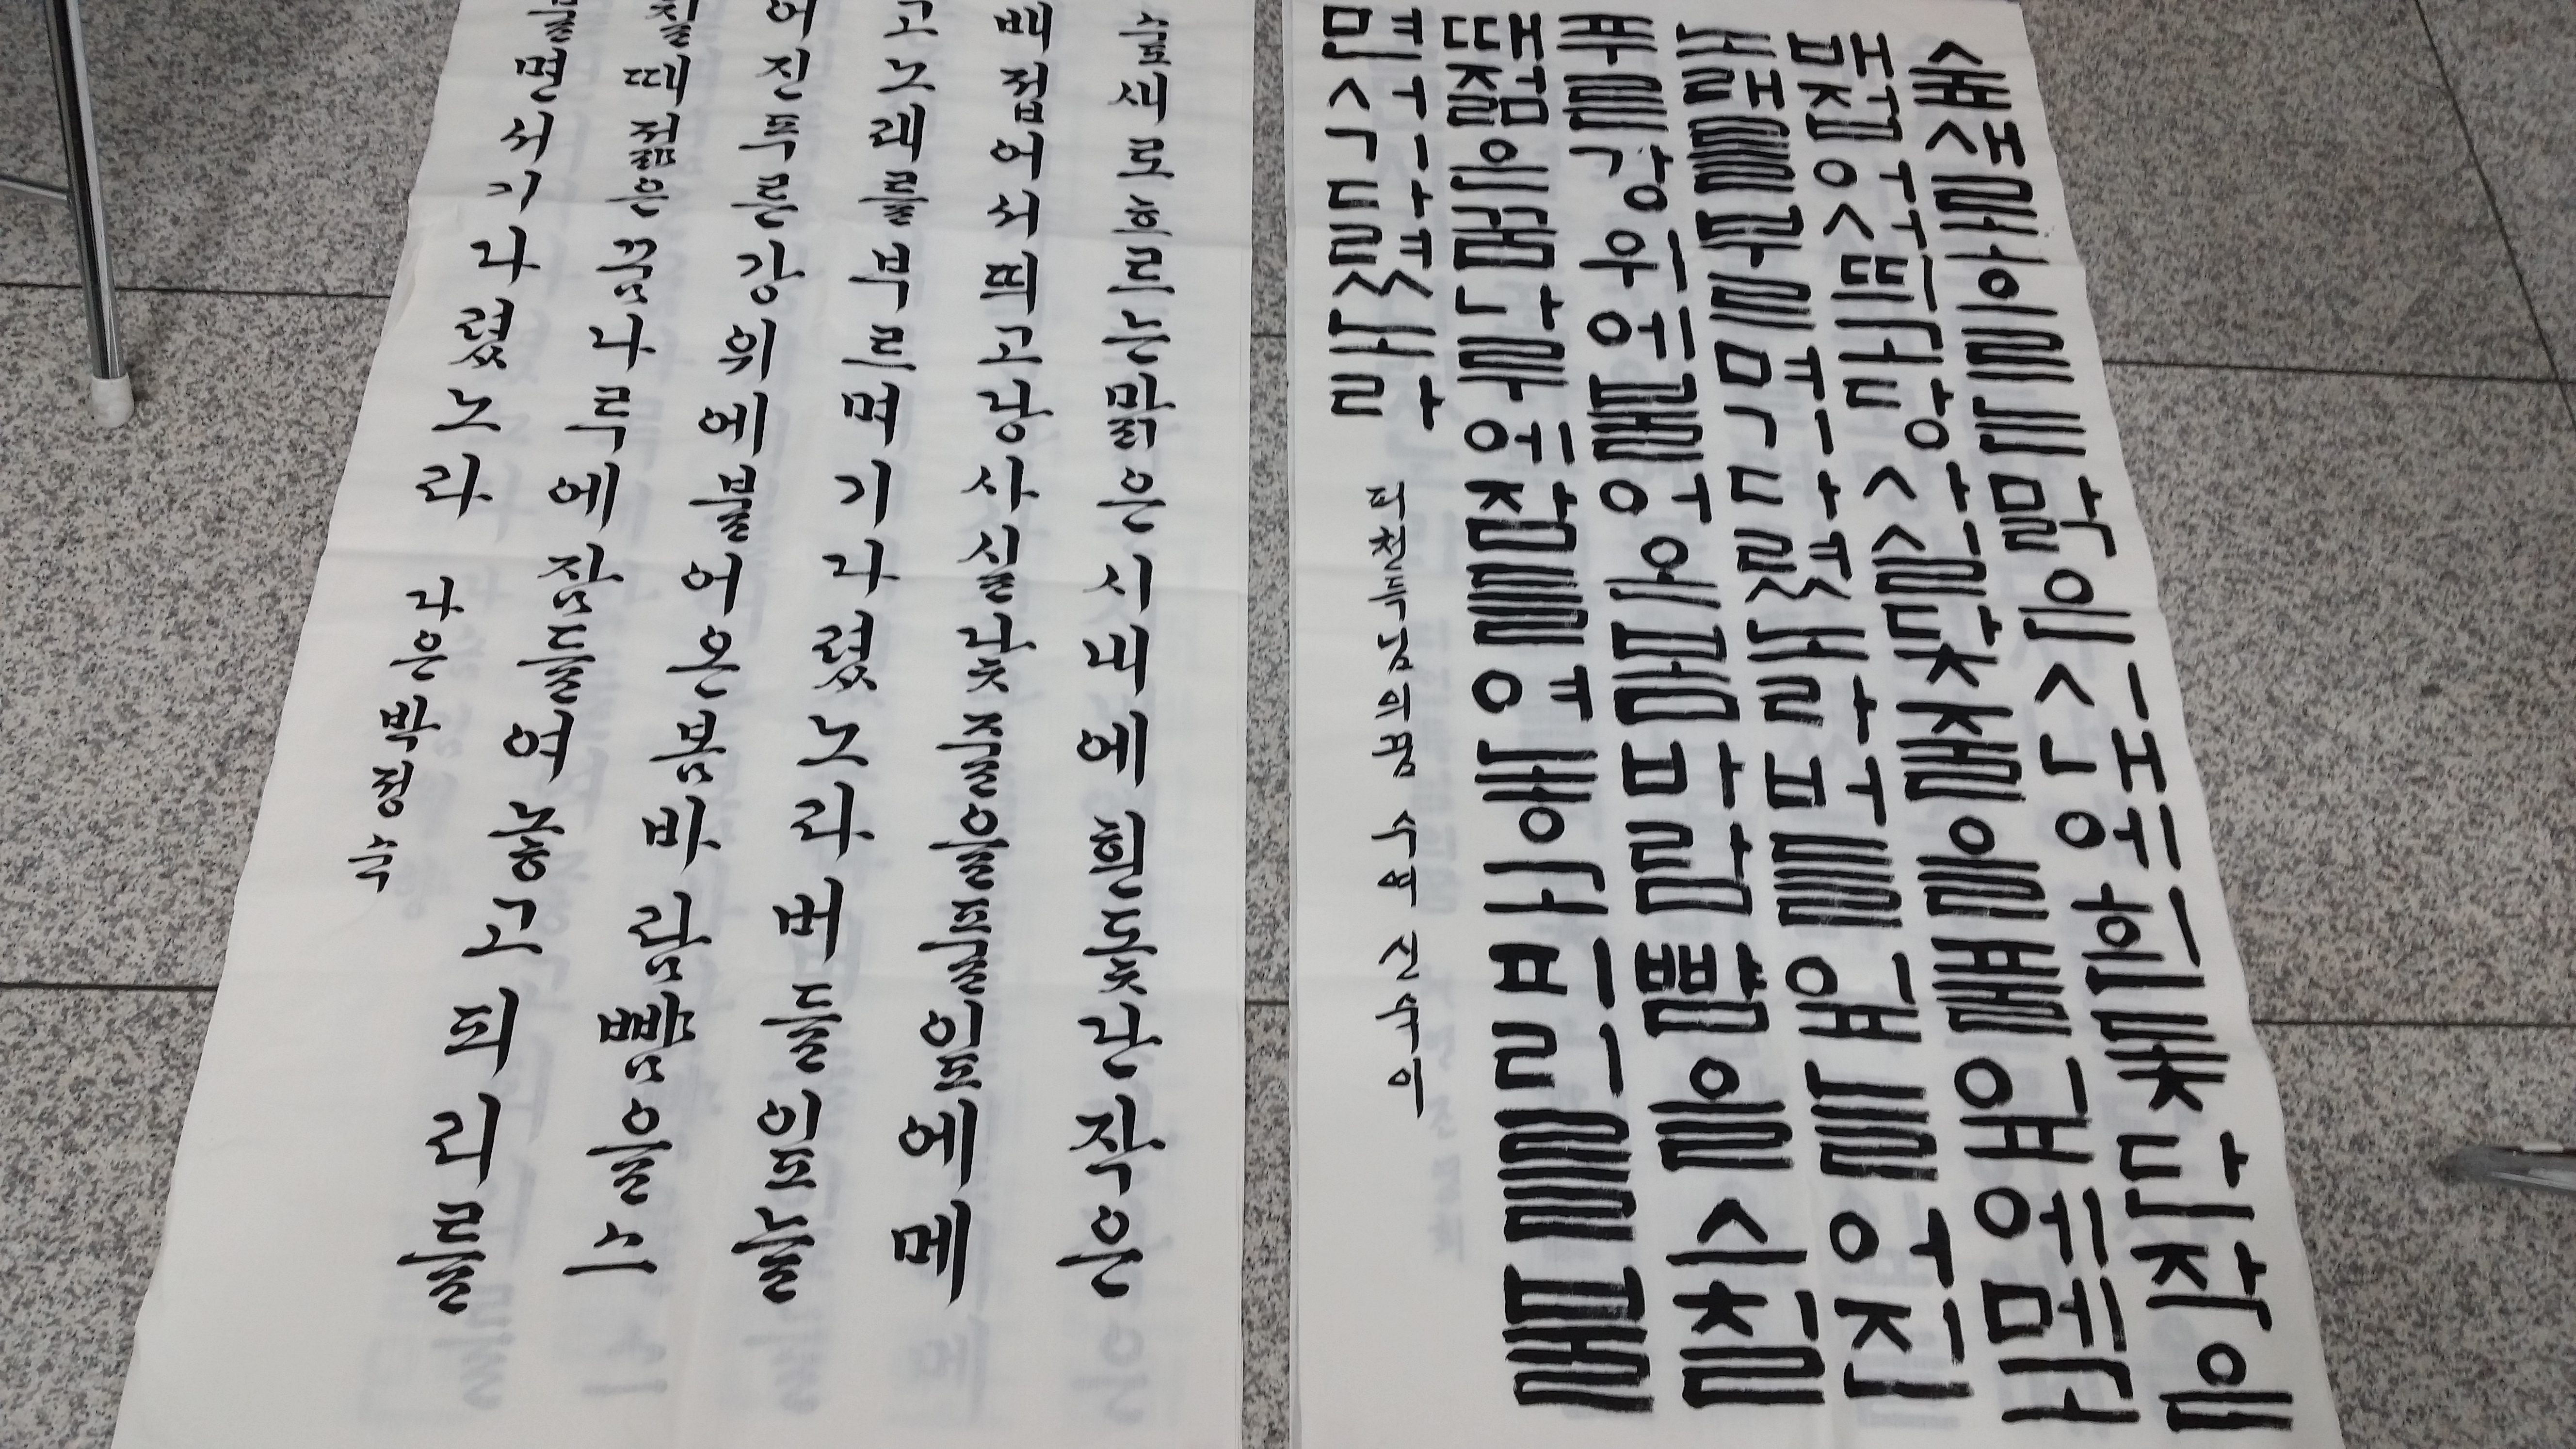 숲새로흐르는맑은시내에흰돛단작은
배접어서띄고당사실닻줄을풀잎에메고
노래를부르며기다렸노라버들잎늘어진
푸른강위에불어온봄바람뺨을스칠
때젊은꿈나루에잠들여놓고피리를불
면서기다렸노라
피천득님의꿈 수여 신숙이
숲새로흐르는맑은시내에흰돛단작은
배접어서띄고당사실닻줄을풀잎에메
고노래를부르며기다렸노라버들잎늘
어진푸른강위에불어온봄바람뺨을스
칠때젊은꿈나루에잠들여놓고피리를
불면서기다렸노라
다은박정숙